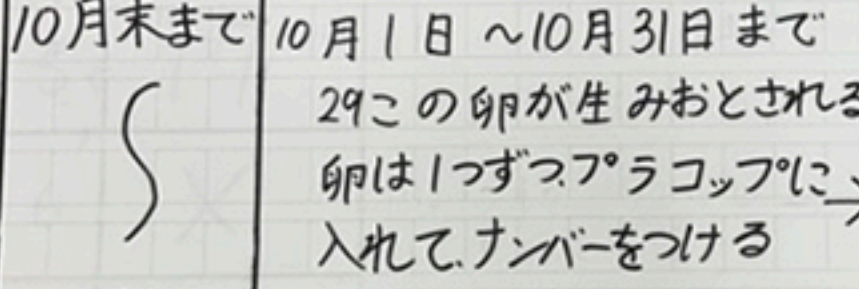 10月末まで
10月1日〜10月31日まで
29この卵が生みおとされる
卵は1つずつ、プラコップに
入れて、ナンバーをつける